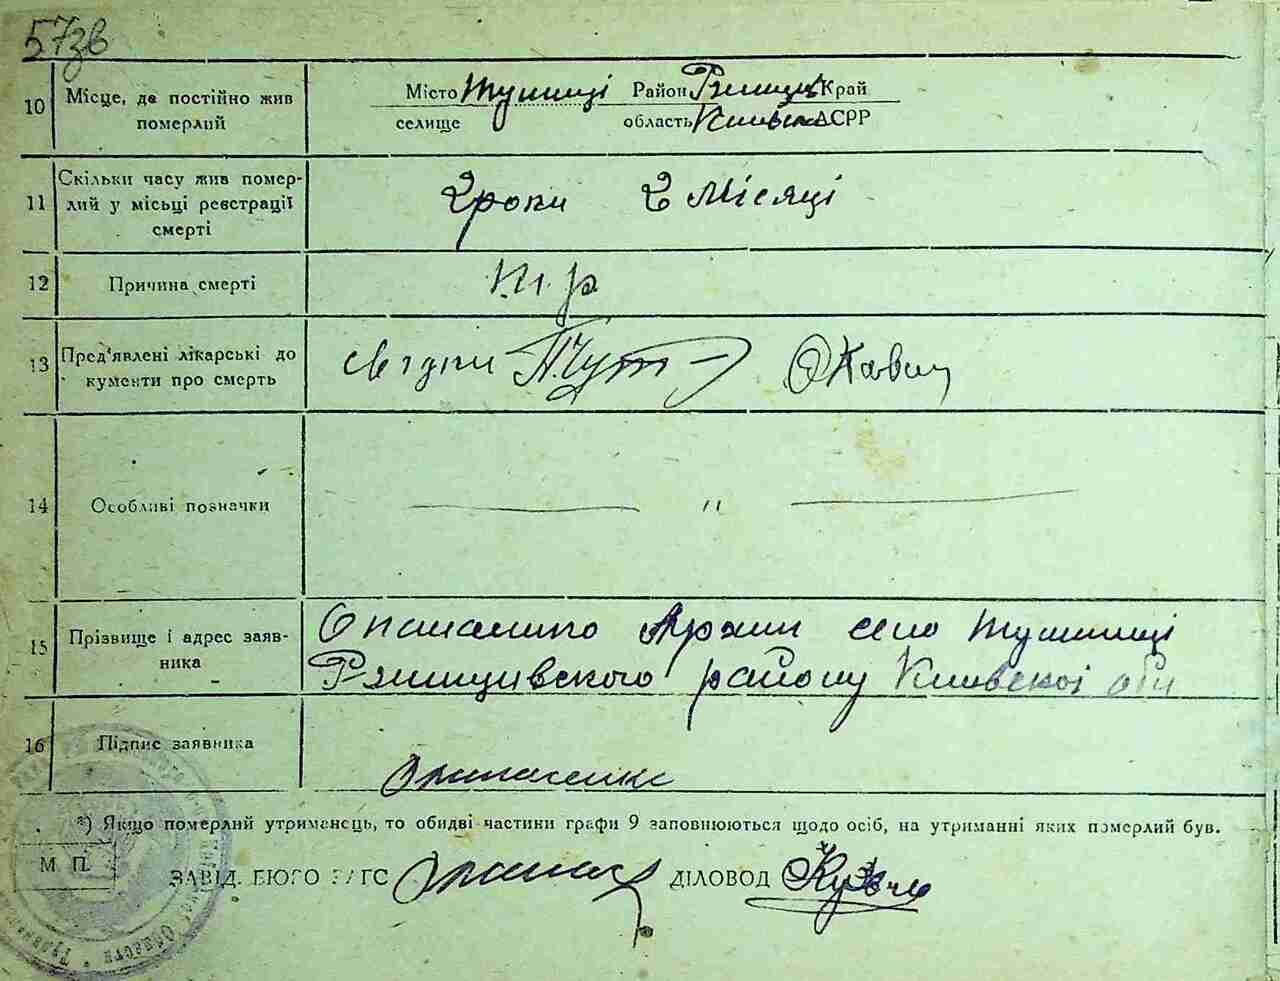 57зв
10 Місце, де постійно жив померлий
Місто Тулинці Район Ржищів Край
селище область Київська АСРР
11 Скільки часу жив помер-
лий у місьці реєстрації
смерті
2 роки 2 місяці
12 Причина смерті
13 Пред'явлені лікарські до
кументи про смерть
свідки
14 Особливі позначки
— " —
15 Прізвище і адрес заяв-
ника
село Тулинці
Ржищивского району Киівскоі обл
16 Підпис заявника
*) Якщо померлий утриманець, то обидві частини графи 9 заповнюються щодо осіб, на утриманні яких померлий був.
М. П.
ЗАВІД. БЮРО ЗАГС ДІЛОВОД